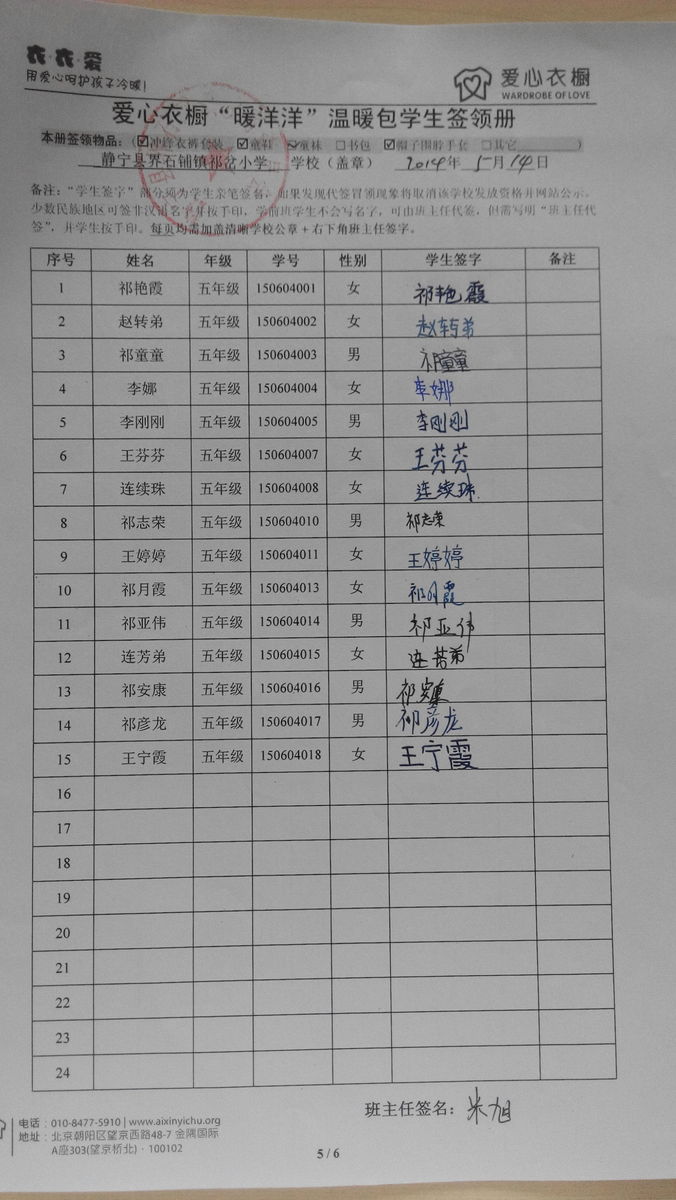 衣·衣·爱
用爱心呵护孩子冷暖!
爱心衣橱
WARDROBE OF LOVE
爱心衣橱“暖洋洋”温暖包学生签领册
本册签领物品:(☑冲锋衣裤套装 ☑童鞋 ☑童袜 □书包 ☑帽子围脖手套 □其它 )
静宁县界石铺镇祁岔小学 学校(盖章) 2014年 5月14日
备注:“学生签字”部分须为学生亲笔签名,如果发现代签冒领现象将取消该学校发放资格并网站公示。
少数民族地区可签非汉语名字并按手印,学前班学生不会写名字,可由班主任代签,但需写明“班主任代
签”,并学生按手印。每页均需加盖清晰学校公章+右下角班主任签字。
序号 姓名 年级 学号 性别 学生签字 备注
1 祁艳霞 五年级 150604001 女 祁艳霞
2 赵转弟 五年级 150604002 女 赵转弟
3 祁童童 五年级 150604003 男 祁童童
4 李娜 五年级 150604004 女 李娜
5 李刚刚 五年级 150604005 男 李刚刚
6 王芬芬 五年级 150604007 女 王芬芬
7 连续珠 五年级 150604008 女 连续珠
8 祁志荣 五年级 150604010 男 祁志荣
9 王婷婷 五年级 150604011 女 王婷婷
10 祁月霞 五年级 150604013 女 祁月霞
11 祁亚伟 五年级 150604014 男 祁亚伟
12 连芳弟 五年级 150604015 女 连芳弟
13 祁安康 五年级 150604016 男 祁安康
14 祁彦龙 五年级 150604017 男 祁彦龙
15 王宁霞 五年级 150604018 女 王宁霞
16
17
18
19
20
21
22
23
24
班主任签名:朱旭
电话:010-8477-5910 | www.aixinyichu.org
地址:北京朝阳区望京西路48-7 金隅国际
A座303(望京桥北)·100102
5 / 6